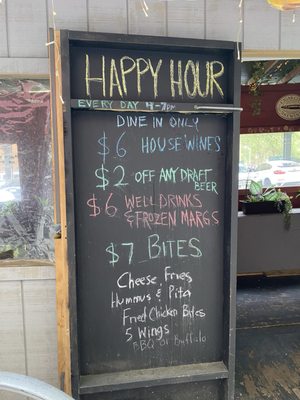 HAPPY HOUR
EVERY DAY 4-7PM
DINE IN ONLY
$6 HOUSE WINES
$2 OFF ANY DRAFT
BEER
$6 WELL DRINKS
& FROZEN MARGS
$7 BITES
Cheese Fries
Hummus & Pita
Fried Chicken Bites
5 Wings
BBQ or Buffalo